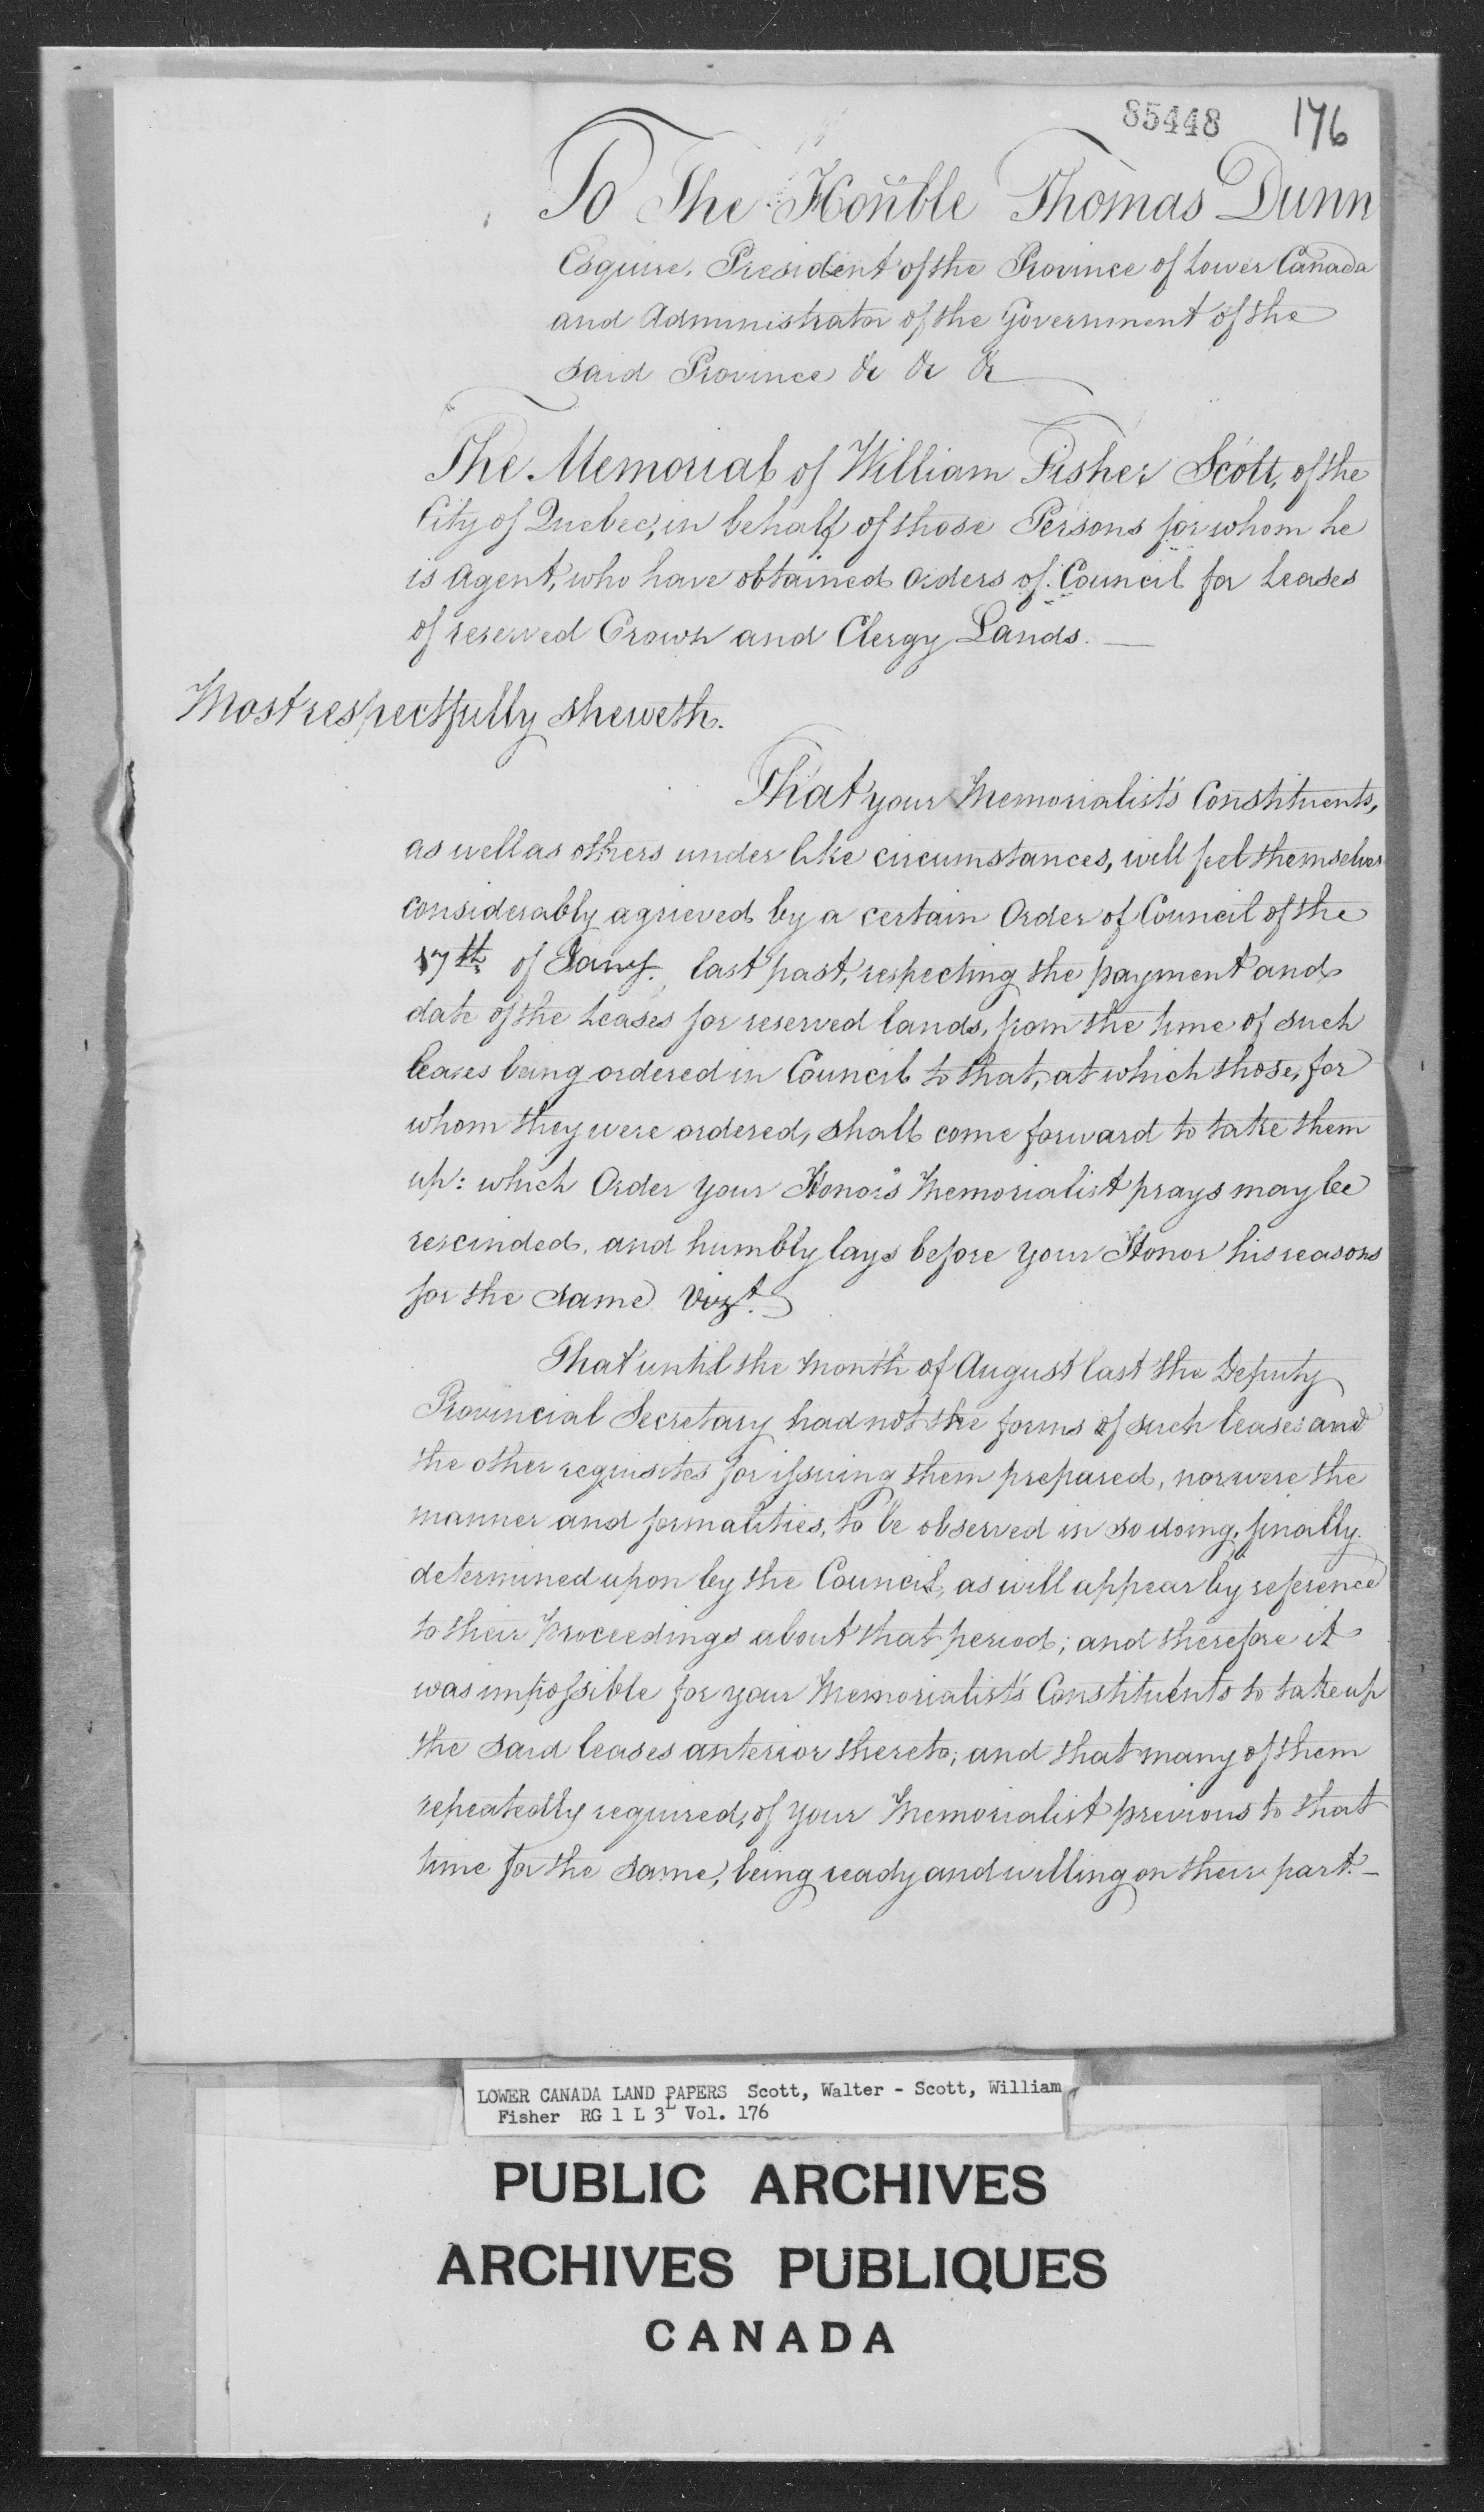 85448 176
To The Hoñble Thomas Dunn
Esquire, President of the Province of Lower Canada
and Administrator of the Government of the
said Province &c &c &c
The Memorial of William Fisher Scott, of the
City of Quebec, in behalf of those Persons for whom he
is Agent, who have obtained Orders of Council for Leases
of reserved Crown and Clergy Lands. —
Most respectfully sheweth.
That your Memorialist's Constituents,
as well as others under like circumstances, will feel themselves
considerably agrieved by a certain Order of Council of the
17th of Jany. last past, respecting the payment and
date of the Leases for reserved lands, from the time of such
leases being ordered in Council to that, at which those, for
whom they were ordered, shall come forward to take them
up: which Order your Honor's Memorialist prays may be
rescinded, and humbly lays before your Honor his reasons
for the same Vizt.
That until the Month of August last the Deputy
Provincial Secretary had not the forms of such leases and
the other requisites for issuing them prepared, nor were the
manner and formalities, to be observed in so doing, finally
determined upon by the Council, as will appear by reference
to their Proceedings about that period; and therefore it
was impossible for your Memorialist's Constituents to take up
the said leases anterior thereto; and that many of them
repeatedly required, of your Memorialist previous to that
time for the same, being ready and willing on their part. —
LOWER CANADA LAND PAPERS Scott, Walter - Scott, William
Fisher RG 1 L 3L Vol. 176
PUBLIC ARCHIVES
ARCHIVES PUBLIQUES
CANADA